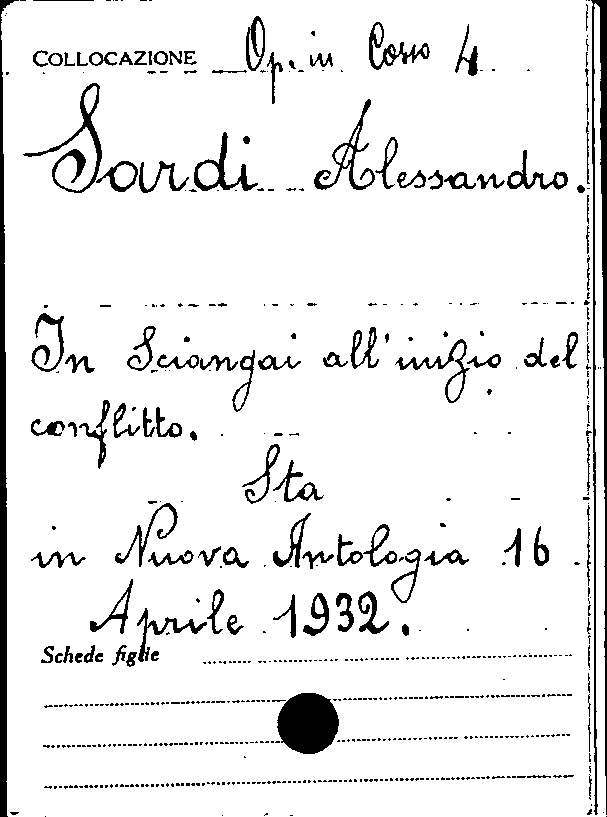 COLLOCAZIONE Op. in Corso 4
Sardi Alessandro.
In Sciangai all'inizio del
conflitto.
Sta
in Nuova Antologia 16
Aprile 1932.
Schede figlie